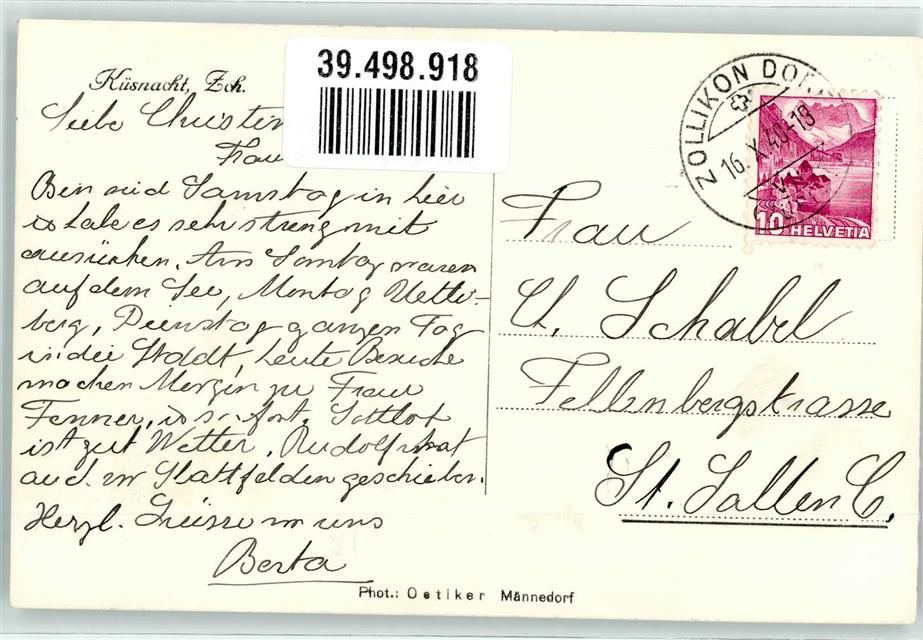 39.498.918
Küsnacht, Zch.
Liebe Christen
Frau
Bin seid Samstag in hier
u. habe es sehr streng mit
ausrücken. Am Sonntag waren
auf dem See, Montag Uetli-
berg, Dienstag ganzen Tag
in die Staddt, heute Besuche
machen Morgin zu Frau
Fenner, u. so fort. Gottlob
ist gut Wetter. Rudolf hat
auch von Stattfelden geschieben.
Herzl. Grüsse von uns
Berta
Phot.: Oetiker Männedorf
ZOLLIKON DORF
16.X.40-18
10 HELVETIA
Frau
U. Schabel
Fellenbergstrasse
St. Gallen C.